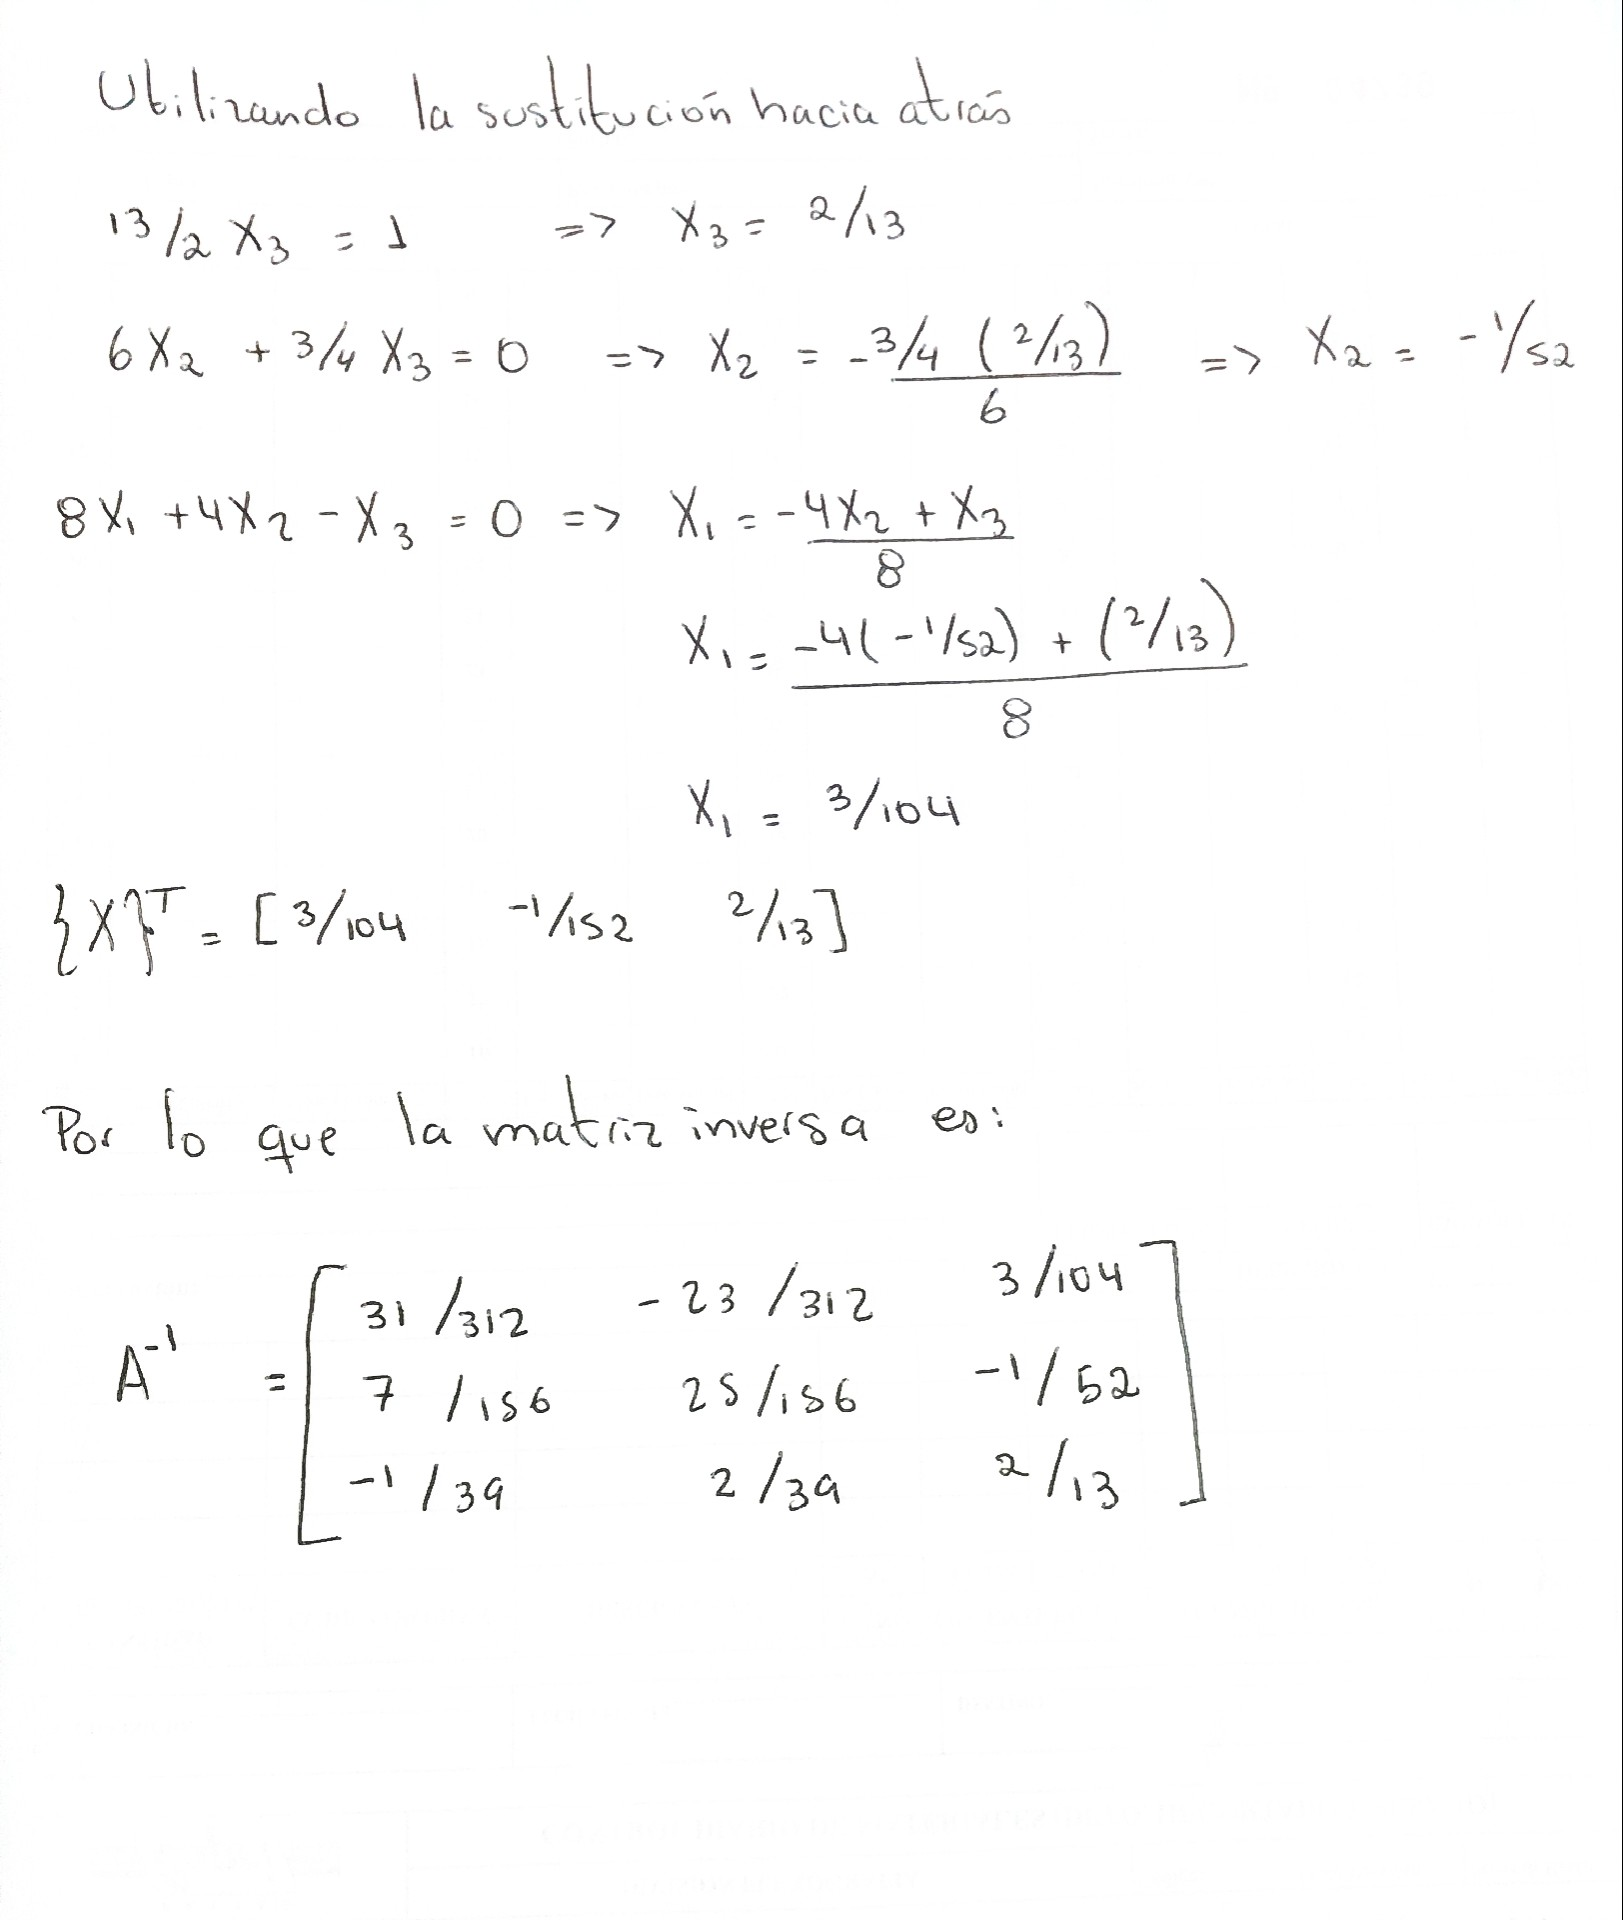 Utilizando la sustitución hacia atrás
13/2 X3 = 1 => X3 = 2/13
6X2 + 3/4 X3 = 0 => X2 = -3/4 (2/13) / 6 => X2 = -1/52
8X1 + 4X2 - X3 = 0 => X1 = -4X2 + X3 / 8
X1 = -4(-1/52) + (2/13) / 8
X1 = 3/104
{X}T = [3/104 -1/152 2/13]
Por lo que la matriz inversa es:
31/312 -23/312 3/104
A-1 = 7/156 25/156 -1/52
-1/39 2/39 2/13